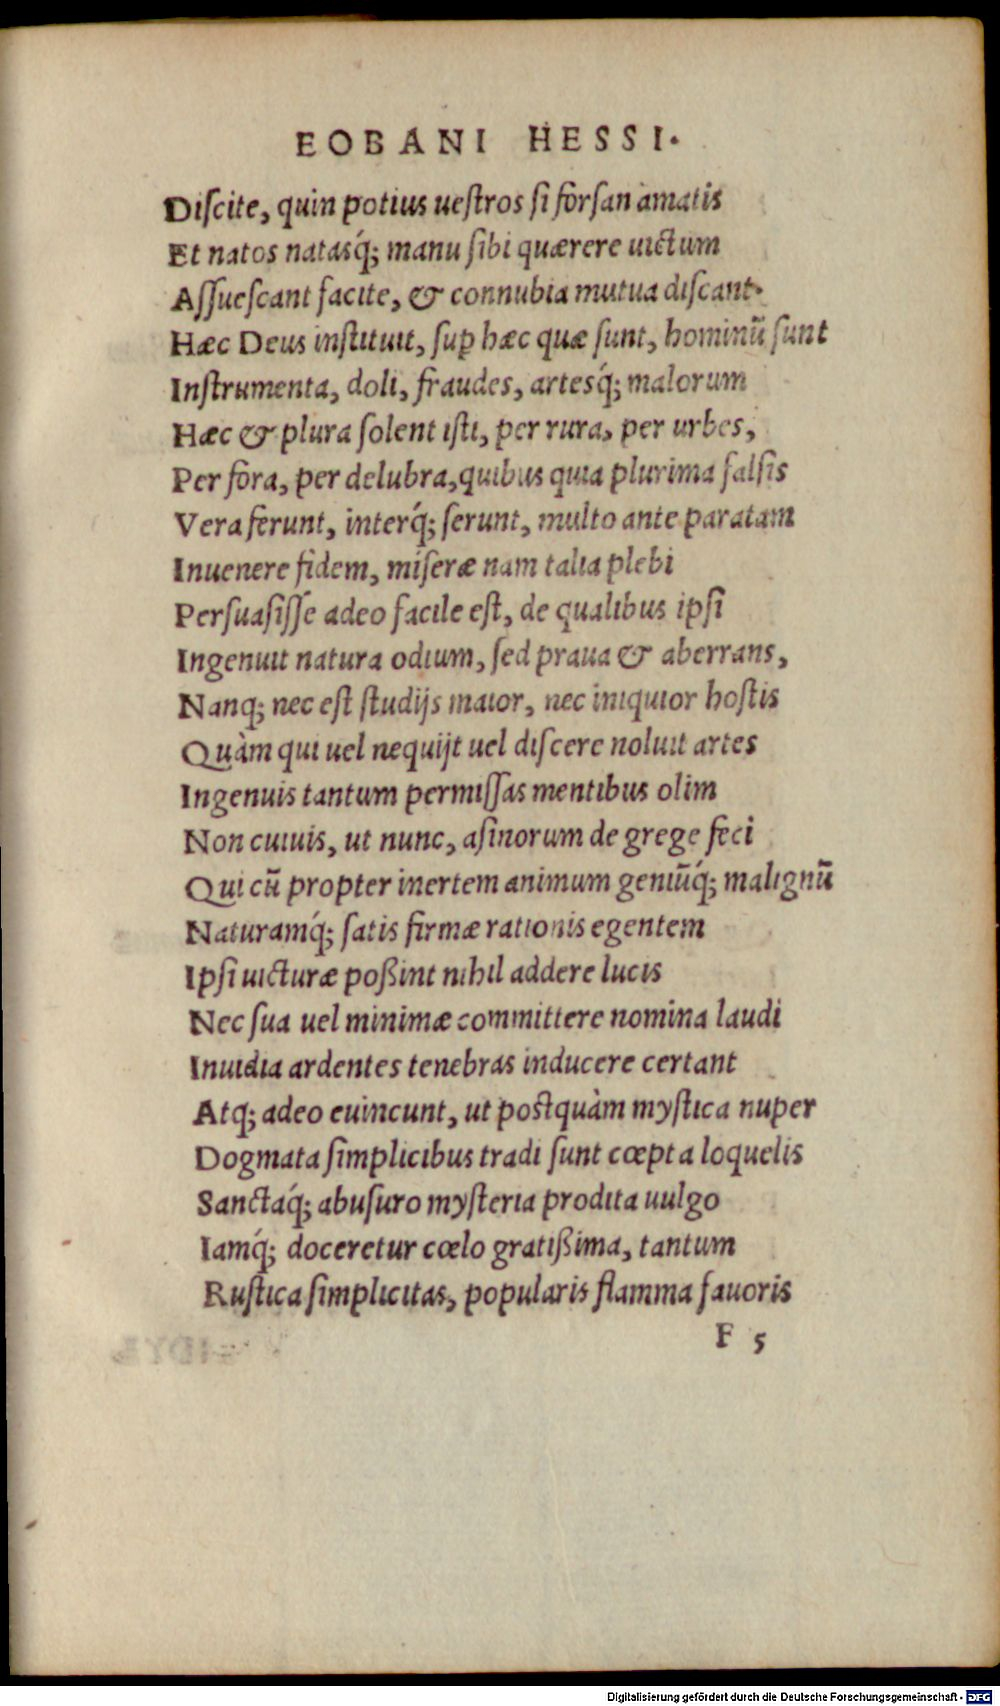 EOBANI HESSI.
Diſcite, quin potius ueſtros ſi forſan amatis
Et natos natasq́; manu ſibi quærere uictum
Aſſueſcant facite, & connubia mutua diſcant.
Hæc Deus inſtituit, suꝑ hæc quæ ſunt, hominũ ſunt
Inſtrumenta, doli, fraudes, artesq́; malorum
Hæc & plura ſolent iſti, per rura, per urbes,
Per fora, per delubra, quibus quia plurima falſis
Vera ferunt, interq́; ſerunt, multo ante paratam
Inuenere fidem, miſeræ nam talia plebi
Perſuaſiſſe adeo facile eſt, de qualibus ipſi
Ingenuit natura odium, ſed praua & aberrans,
Nanq; nec eſt ſtudijs maior, nec iniquior hoſtis
Quàm qui uel nequijt uel diſcere noluit artes
Ingenuis tantum permiſſas mentibus olim
Non cuiuis, ut nunc, aſinorum de grege feci
Qui cũ propter inertem animum geniũq́; malignũ
Naturamq́; ſatis firmæ rationis egentem
Ipſi uicturæ poßint nihil addere lucis
Nec ſua uel minimæ committere nomina laudi
Inuidia ardentes tenebras inducere certant
Atq; adeo euincunt, ut poſtquàm myſtica nuper
Dogmata ſimplicibus tradi ſunt cœpta loquelis
Sanctaq́; abuſuro myſteria prodita uulgo
Iamq́; doceretur cœlo gratißima, tantum
Ruſtica ſimplicitas, popularis flamma fauoris
F 5
Digitalisierung gefördert durch die Deutsche Forschungsgemeinschaft - DFG